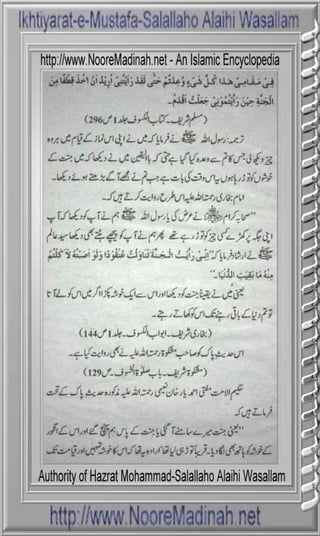 Ikhtiyarat-e-Mustafa-Salallaho Alaihi Wasallam
http://www.NooreMadinah.net - An Islamic Encyclopedia
فِىْ مَقَامِىْ هٰذَا كُلَّ شَىْءٍ وُعِدْتُمْ حَتّٰى لَقَدْ رَاَيْتُنِىْ اُرِيْدُ اَنْ اٰخُذَ قِطْفًا مِنَ
الْجَنَّةِ حِيْنَ رَاَيْتُمُوْنِىْ جَعَلْتُ اَقْدَمُ۔
(مسلم شریف۔ کتاب الکسوف۔ جلد 1 ص 296)
ترجمہ: رسول اللہ ﷺ نے فرمایا کہ میں نے اپنی اس نماز کے قیام میں ہر وہ
چیز دیکھ لی جس کا تم سے وعدہ کیا گیا ہے حتی کہ بالیقین میں نے دیکھا کہ میں جنت کے
خوشوں کو توڑ رہا ہوں یہ اس وقت کی بات ہے جب تم نے مجھے آگے بڑھتے ہوئے دیکھا۔
امام بخاری رحمۃ اللہ علیہ اس طرح روایت کرتے ہیں کہ۔
"صحابہ کرام نے عرض کی یا رسول اللہ ﷺ ہم نے آپ کو دیکھا کہ آپ
اپنی جگہ پر کھڑے کسی چیز کو توڑ رہے تھے پھر ہم نے آپ کو پیچھے ہٹتے بھی دیکھا سید عالم
ﷺ نے ارشاد فرمایا کہ "اِنِّىْ رَاَيْتُ الْجَنَّةَ فَتَنَاوَلْتُ عُنْقُوْدًا وَلَوْ اَصَبْتُهٗ لَاَكَلْتُمْ
مِنْهُ مَا بَقِيَتِ الدُّنْيَا۔"
یعنی میں نے یقیناً جنت کو دیکھا اور اس سے ایک خوشہ پکڑا اگر میں اس کو لے آتا
تو تم دنیا کے باقی رہنے تک اس کو کھاتے رہتے۔
(بخاری شریف۔ ابواب الکسوف۔ جلد 1 ص 144)
اس حدیث پاک کو صاحب مشکوٰۃ رحمۃ اللہ علیہ نے بھی روایت کیا ہے۔
(مشکوٰۃ شریف۔ باب صلوٰۃ الخسوف۔ ص 129)
حکیم الامت مفتی احمد یار خان نعیمی رحمۃ اللہ علیہ مذکورہ حدیث پاک کے تحت
فرماتے ہیں کہ
"یعنی جنت میرے سامنے آ گئی یا جنت کے پاس ہم پہنچ گئے اور اس کے انگور
کے خوشہ کو ہاتھ بھی لگا دیا۔ قریباً توڑ ہی لیا تھا ارادہ یہ تھا کہ اس کا خوشہ تمہیں اور قیامت تک
Authority of Hazrat Mohammad-Salallaho Alaihi Wasallam
http://www.NooreMadinah.net